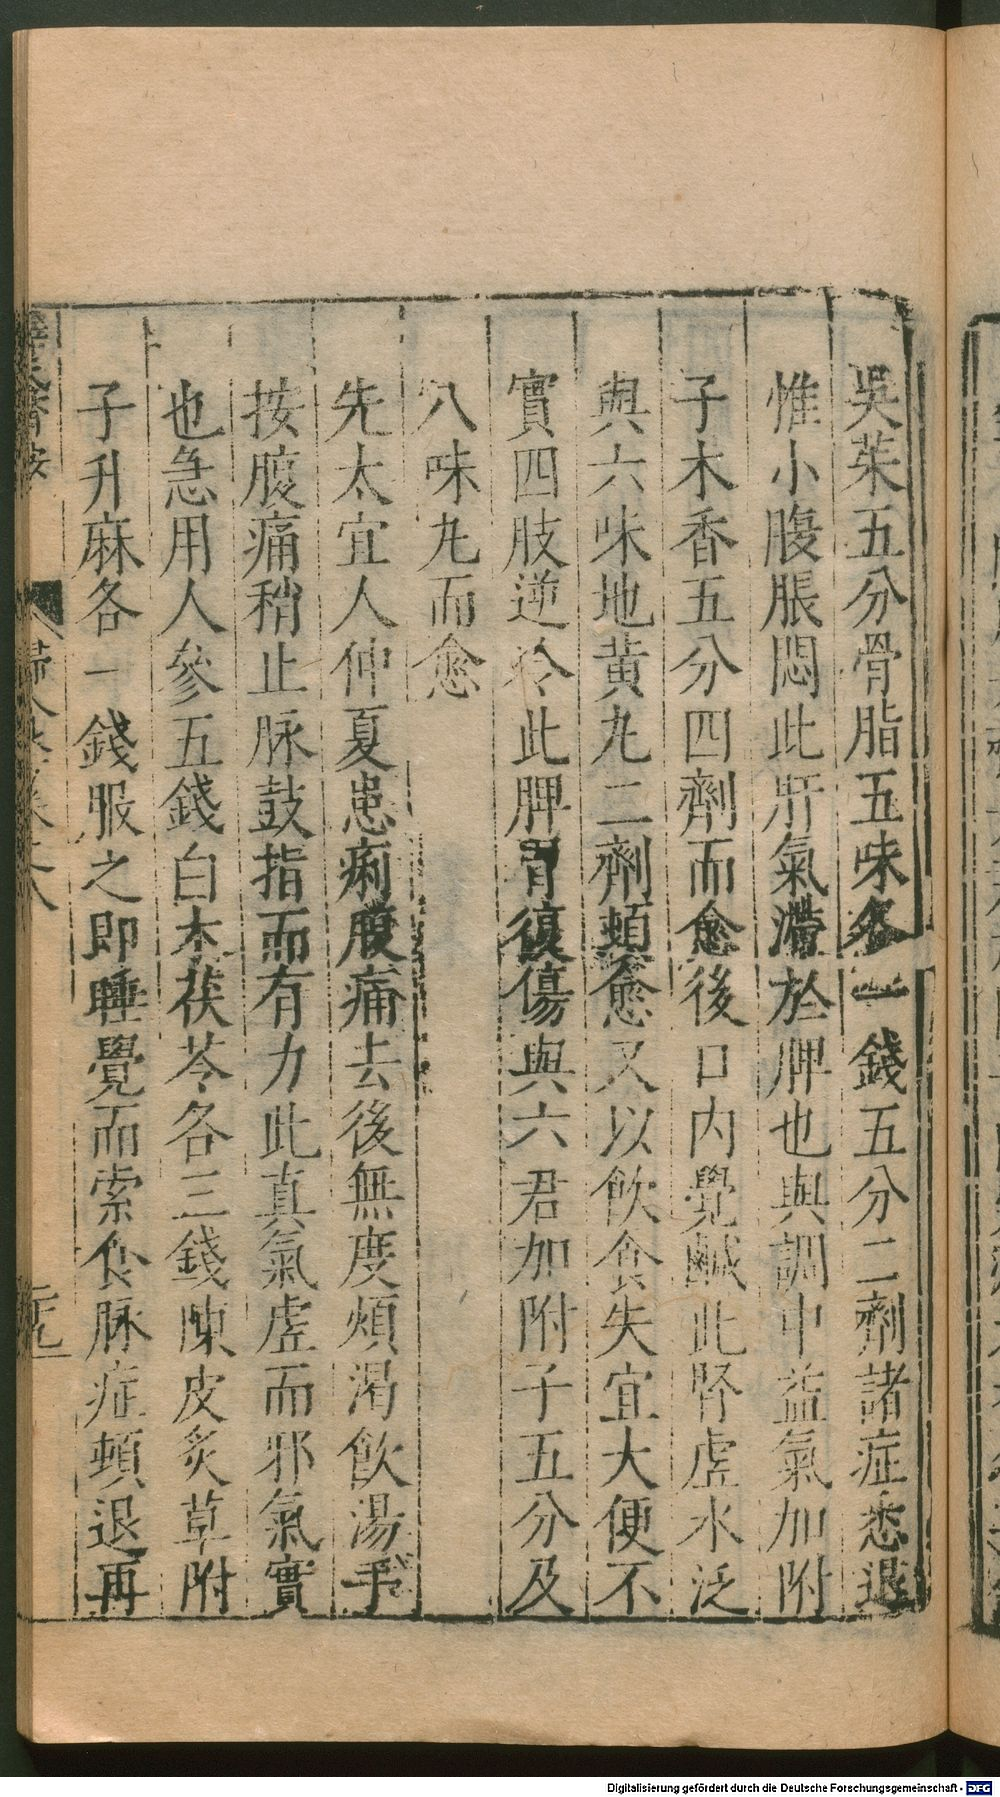 吳茱五分骨脂五味各一錢五分二劑諸症悉退
惟小腹脹悶此肝氣滯於脾也與調中益氣加附
子木香五分四劑而愈後口內覺鹹此腎虛水泛
與六味地黃丸二劑頓愈又以飲食失宜大便不
實四肢逆冷此脾胃復傷與六君加附子五分及
八味丸而愈
先太宜人仲夏患痢腹痛去後無度煩渴飲湯手
按腹痛稍止脉鼓指而有力此真氣虛而邪氣實
也急用人參五錢白朮茯苓各三錢陳皮炙草附
子升麻各一錢服之即睡覺而索食脉症頓退再
薛氏醫按
二十九
Digitalisierung gefördert durch die Deutsche Forschungsgemeinschaft - DFG